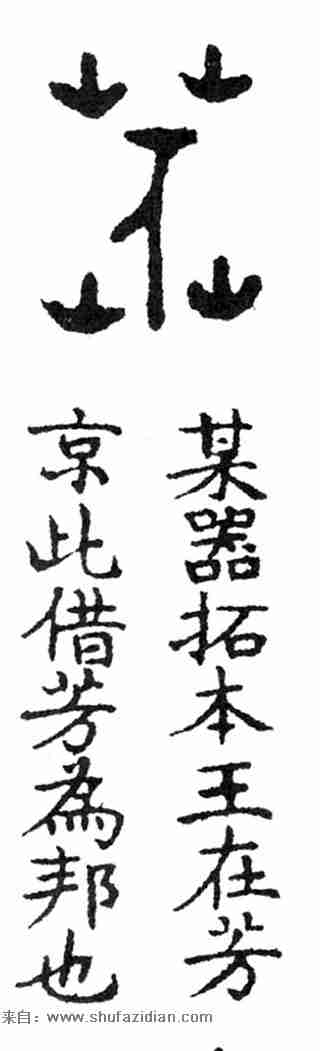 某器拓本王在芳
京此借芳為邦也
来自：www.shufazidian.com